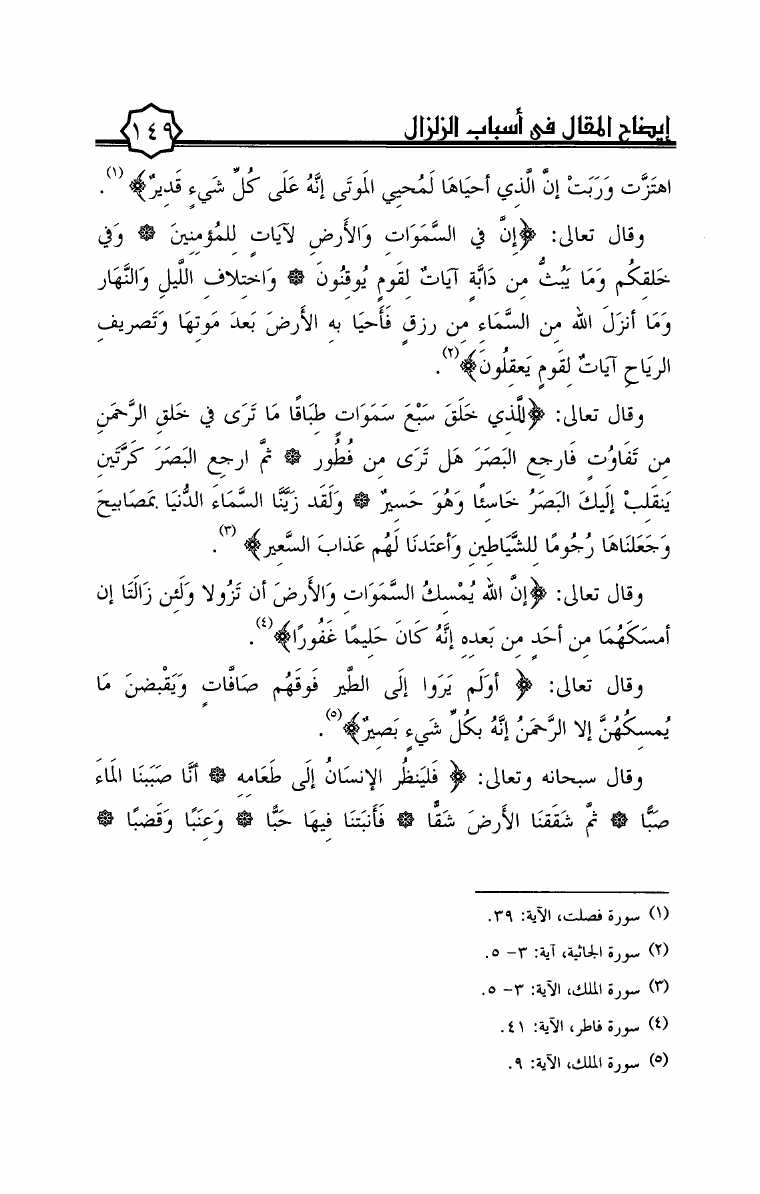 إيضاح المقال في أسباب الزلزال ١٤٩
اهتَزَّت وَرَبَتْ إنَّ الَّذِي أحيَاهَا لَمُحيِي الَموتَى إنَّهُ عَلَى كُلِّ شَيءٍ قَدِيرٌ﴾ (١).
وقال تعالى: ﴿إنَّ فِي السَّمَوَاتِ وَالأَرضِ لآيَاتٍ لِلمُؤمِنِينَ ۞ وَفِي
خَلقِكُم وَمَا يَبُثُّ مِن دَابَّةٍ آيَاتٌ لِقَومٍ يُوقِنُونَ ۞ وَاختِلافِ اللَّيلِ وَالنَّهَارِ
وَمَا أنزَلَ الله مِن السَّمَاءِ مِن رِزقٍ فَأَحيَا بِهِ الأَرضَ بَعدَ مَوتِهَا وَتَصرِيفِ
الرِيَاحِ آيَاتٌ لِقَومٍ يَعقِلُونَ﴾(٢).
وقال تعالى: ﴿للَّذِي خَلَقَ سَبْعَ سَمَوَاتٍ طِبَاقًا مَا تَرَى فِي خَلقِ الرَّحمَنِ
مِن تَفَاوُتٍ فَارجِعِ البَصَرَ هَل تَرَى مِن فُطُورٍ ۞ ثُمَّ ارجِعِ البَصَرَ كَرَّتَينِ
يَنقَلِبْ إلَيكَ البَصَرُ خَاسِئًا وَهُوَ حَسِيرٌ ۞ وَلَقَد زَيَّنَّا السَّمَاءَ الدُّنيَا بِمَصَابِيحَ
وَجَعَلنَاهَا رُجُومًا لِلشَّيَاطِينِ وَأعتَدنَا لَهُم عَذَابَ السَّعِيرِ﴾ (٣).
وقال تعالى: ﴿إنَّ الله يُمْسِكُ السَّمَوَاتِ وَالأَرضَ أن تَزُولا وَلَئِن زَالَتَا إن
أمسَكَهُمَا مِن أحَدٍ مِن بَعدِهِ إنَّهُ كَانَ حَلِيمًا غَفُورًا﴾(٤).
وقال تعالى: ﴿ أوَلَم يَرَوا إلَى الطَّيرِ فَوقَهُم صَافَّاتٍ وَيَقْبِضنَ مَا
يُمسِكُهُنَّ إلا الرَّحمَنُ إنَّهُ بِكُلِّ شَيءٍ بَصِيرٌ﴾(٥).
وقال سبحانه وتعالى: ﴿ فَليَنظُرِ الإنسَانُ إلَى طَعَامِهِ ۞ أنَّا صَبَبنَا الَماءَ
صَبًّا ۞ ثُمَّ شَقَقنَا الأَرضَ شَقًّا ۞ فَأَنبَتنَا فِيهَا حَبًّا ۞ وَعِنَبًا وَقَضبًا ۞
(١) سورة فصلت، الآية: ٣٩.
(٢) سورة الجاثية، آية: ٣- ٥.
(٣) سورة الملك، الآية: ٣- ٥.
(٤) سورة فاطر، الآية: ٤١.
(٥) سورة الملك، الآية: ٩.